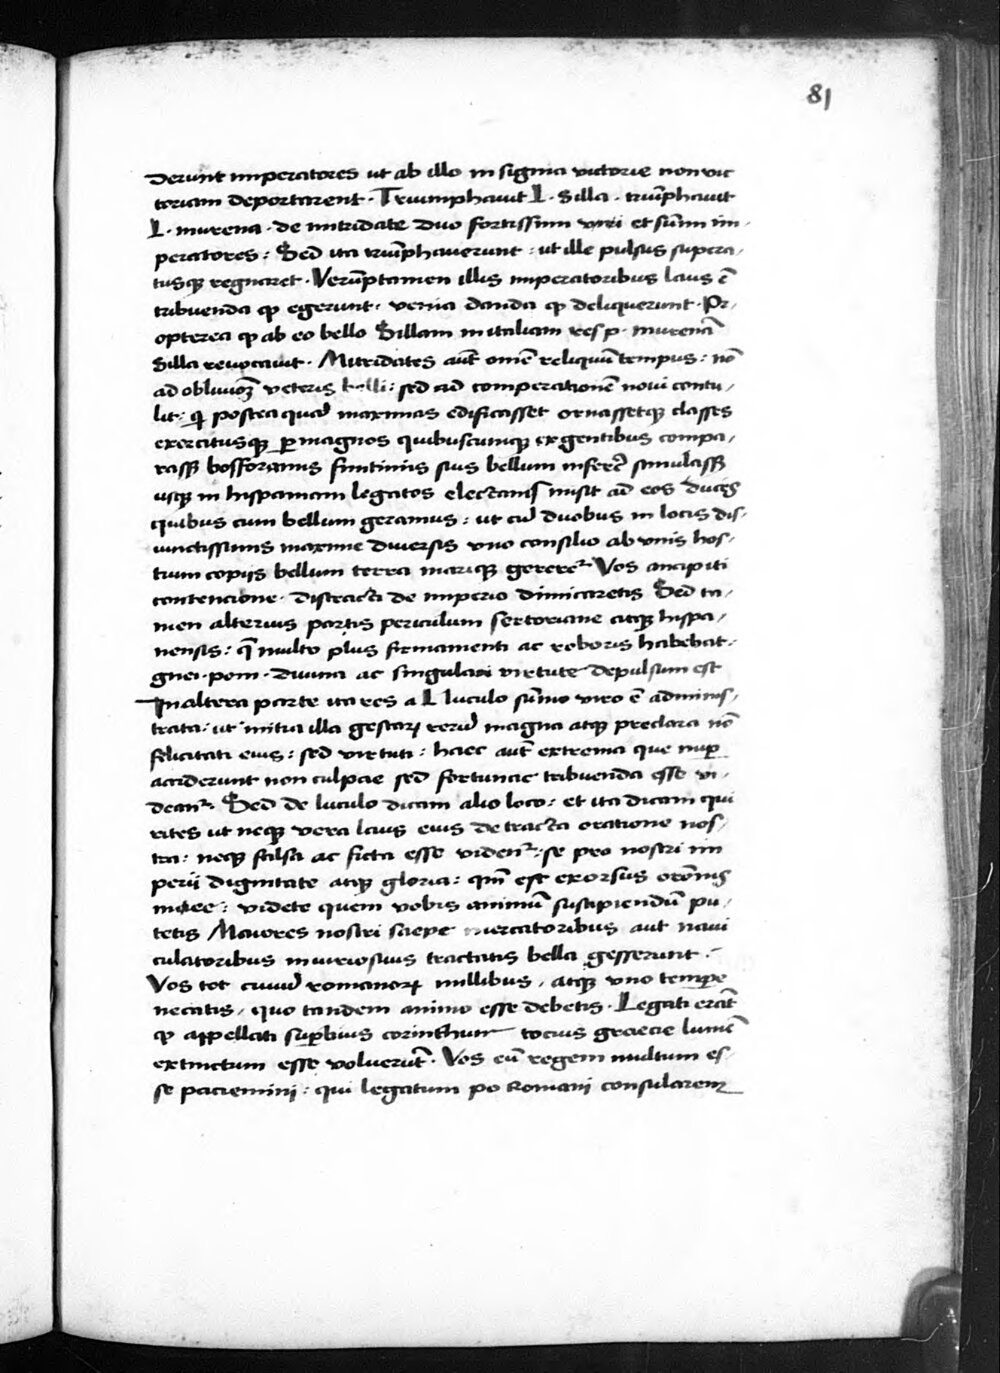 81
derunt imperatores ut ab illo in signia victorie non vic
toriam deportarent · Triumphavit L · Silla · triūphavit
L · murena · de mitridate duo fortissimi viri et sūmi im ·
peratores : Sed ita triūphaverunt : ut ille pulsus supera ,
tusqꝫ regnaret · Verūptamen illis imperatoribus laus ē
tribuenda qꝫ egerunt · venia danda qꝫ deliquerunt · Pr ,
opterea qꝫ ab eo bello Sillam in italiam res p · murenā
Silla revocavit · Mitridates aūt omē reliquū tempus : nō
ad oblivioꝫ veteris belli : sed ad comperationē novi contu ,
lit : qi postea quaꝫ maximas edificasset ornassetqꝫ classes
exercitusqꝫ ꝑmagnos quibuscumqꝫ ex gentibus compa ,
rasꝫ bosforanis finitimis suis bellum inferr̄ simulasꝫ
usqꝫ in hispaniam legatos misit ad eos duces
quibus cum bellum geramus : ut cuꝫ duobus in locis dis ,
iunctissimis maxime diversis uno consilio ab unis hos ,
tium copijs bellum terra mariqꝫ gereret᷑ Vos ancipiti
contencione · districti de imperio dimicaretis Sed ta ,
men alterius partis periculum sertoriane atqꝫ hispa ,
nensis : q̄ multo plus firmamenti ac roboris habebat ·
gnei · pom · divina ac singulari virtute depulsum est
In altera parte ita res a L luculo sūmo viro ē adminis ,
trata : ut initia illa gestaꝝ reruꝫ magna atqꝫ preclara nō
felicitati eius : sed virtuti : haec aūt extrema que nuꝑ
acciderunt non culpae sed fortunae tribuenda esse vi ,
dean᷑ · Sed de luculo dicam alio loco : et ita dicam qui
rites ut neqꝫ vera laus eius detracta oratione nos ,
tra : neqꝫ falsa ac ficta esse viden᷑ : se pro nostri im
perij dignitate atqꝫ gloria : qm̄ est exorsus orōnis
meee : videte quem vobis animū suscipiendū pu ,
tetis Maiores nostri saepe mercatoribus aut navi
culatoribus iniuriosius tractatis bella gesserunt :
Vos tot civiuꝫ romanoꝝ millibus , atqꝫ uno tempore
necatis , quo tandem animo esse debetis · Legati erāt
qꝫ appellati suꝑbius corinthum tocius graecie lumē
extinctum esse voluerūt · Vos eū regem inultum es ,
se paciemini : qui legatum po Romani consularem